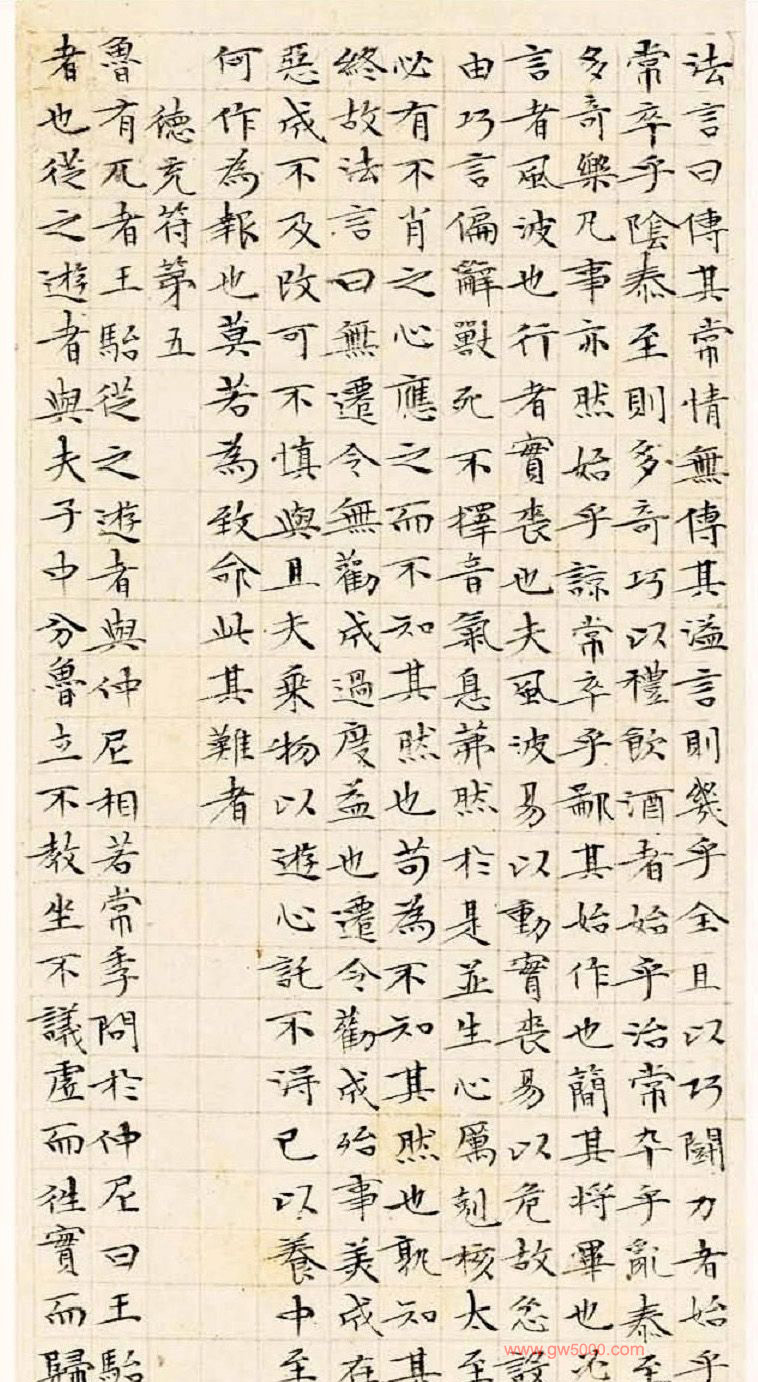 法言曰傳其常情無傳其溢言則幾乎全且以巧鬭力者始乎
常卒乎陰泰至則多奇巧以禮飲酒者始乎治常卒乎亂泰至
多奇樂凡事亦然始乎諒常卒乎鄙其始作也簡其將畢也必
言者風波也行者實喪也夫風波易以動實喪易以危故忿設
由巧言偏辭獸死不擇音氣息茀然於是並生心厲剋核太至
必有不肖之心應之而不知其然也苟為不知其然也孰知其
終故法言曰無遷令無勸成過度益也遷令勸成殆事美成在
惡成不及改可不慎與且夫乘物以遊心託不得已以養中至
何作為報也莫若為致命此其難者
德充符第五
魯有兀者王駘從之遊者與仲尼相若常季問於仲尼曰王駘
者也從之遊者與夫子中分魯立不教坐不議虛而往實而歸
www.gw5000.com